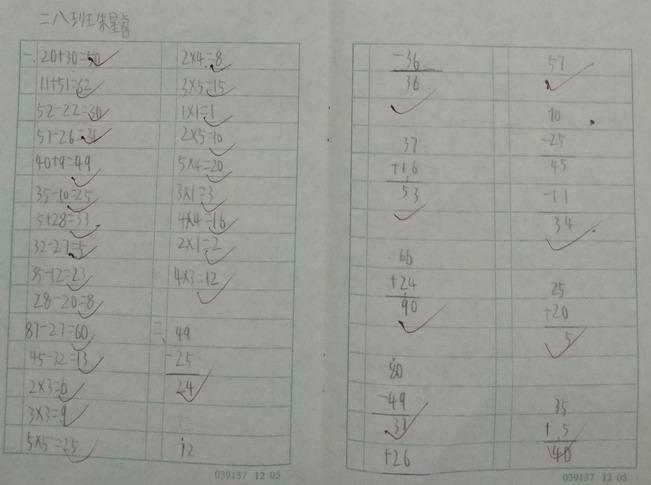 二八班朱星睿
一.20+30=50
11+51=62
52-22=30
57-26=31
40+9=49
35-10=25
5+28=33
32-27=5
35-12=23
28-20=8
87-27=60
45-32=13
2×3=6
3×3=9
5×5=25
2×4=8
3×5=15
1×1=1
2×5=10
5×4=20
3×1=3
4×4=16
2×1=2
4×3=12
二、49
-25
24
72
039137 12 05
-36
36
37
+16
53
66
+24
90
80
-49
31
+26
57
70
-25
45
-11
34
25
+20
5
35
+5
40
039137 12 05